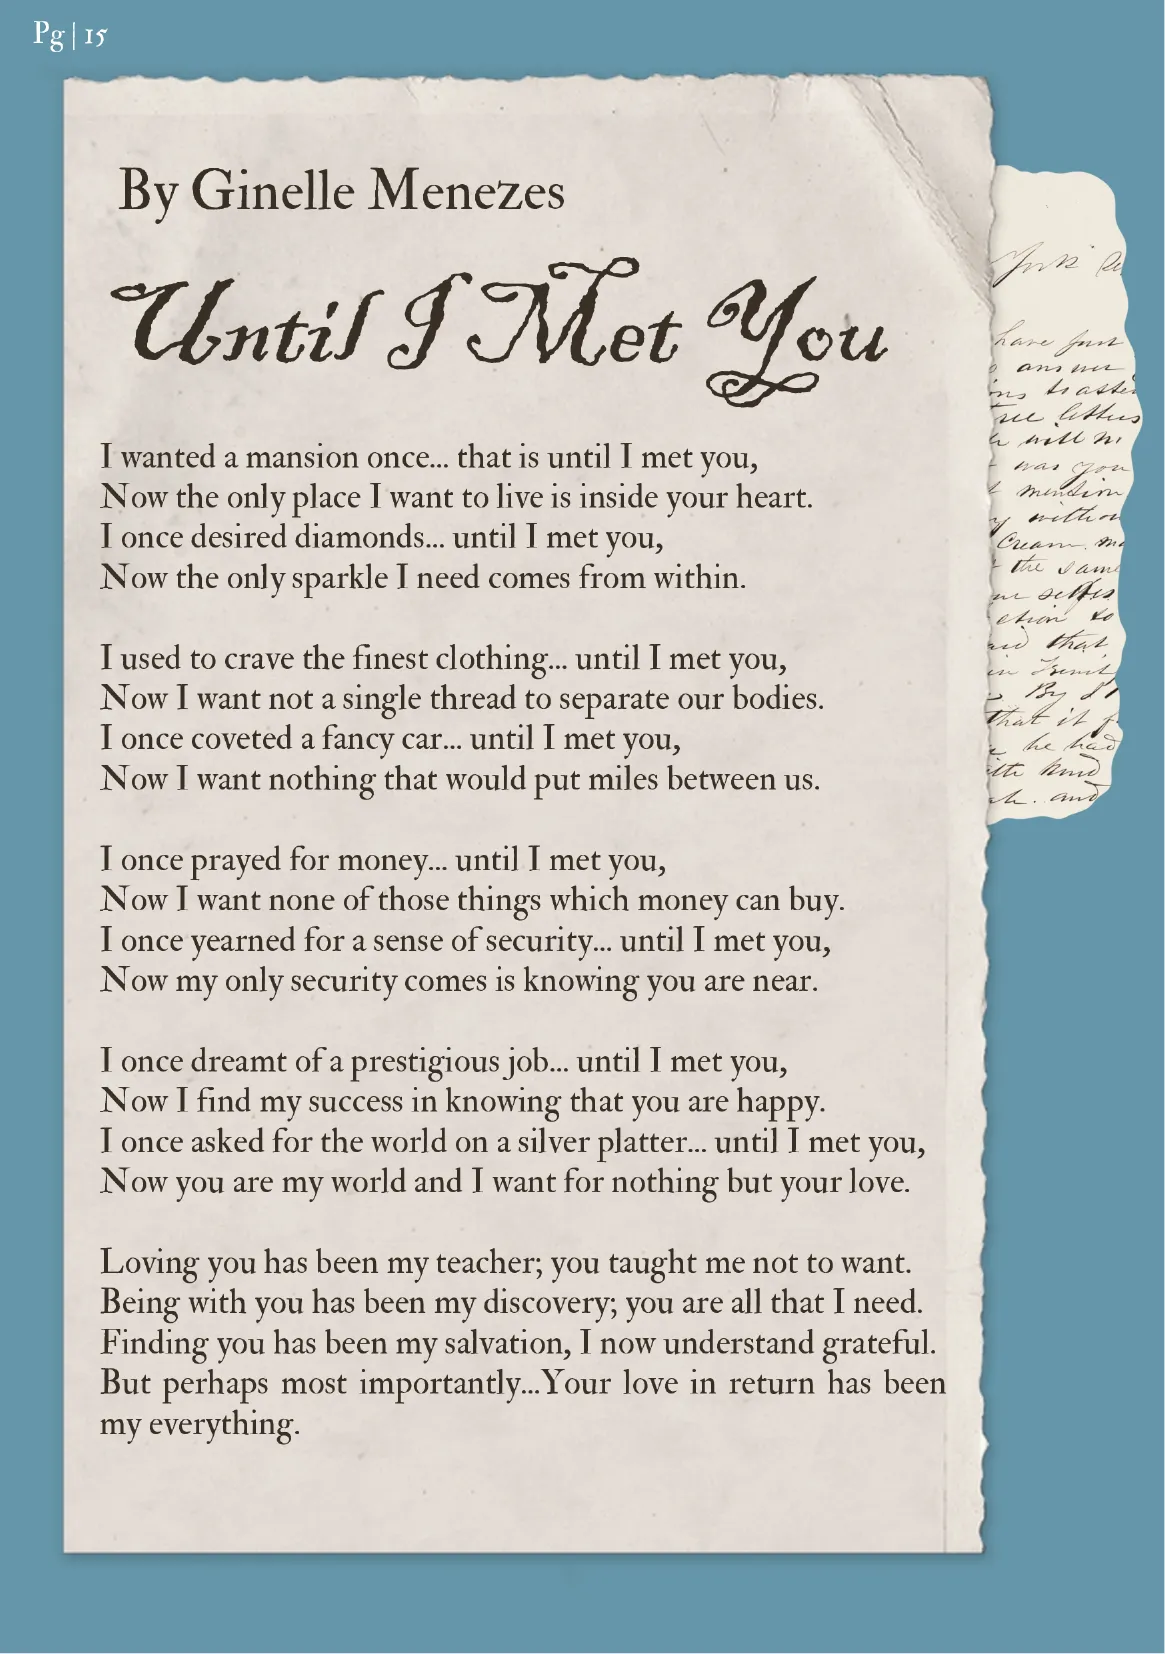 Pg | 15
By Ginelle Menezes
Until I Met You
I wanted a mansion once... that is until I met you,
Now the only place I want to live is inside your heart.
I once desired diamonds... until I met you,
Now the only sparkle I need comes from within.
I used to crave the finest clothing... until I met you,
Now I want not a single thread to separate our bodies.
I once coveted a fancy car... until I met you,
Now I want nothing that would put miles between us.
I once prayed for money... until I met you,
Now I want none of those things which money can buy.
I once yearned for a sense of security... until I met you,
Now my only security comes is knowing you are near.
I once dreamt of a prestigious job... until I met you,
Now I find my success in knowing that you are happy.
I once asked for the world on a silver platter... until I met you,
Now you are my world and I want for nothing but your love.
Loving you has been my teacher; you taught me not to want.
Being with you has been my discovery; you are all that I need.
Finding you has been my salvation, I now understand grateful.
But perhaps most importantly...Your love in return has been
my everything.
have just
answer
letters
was you
mention
Cream
the same
that
By
that it
he had
kind
and